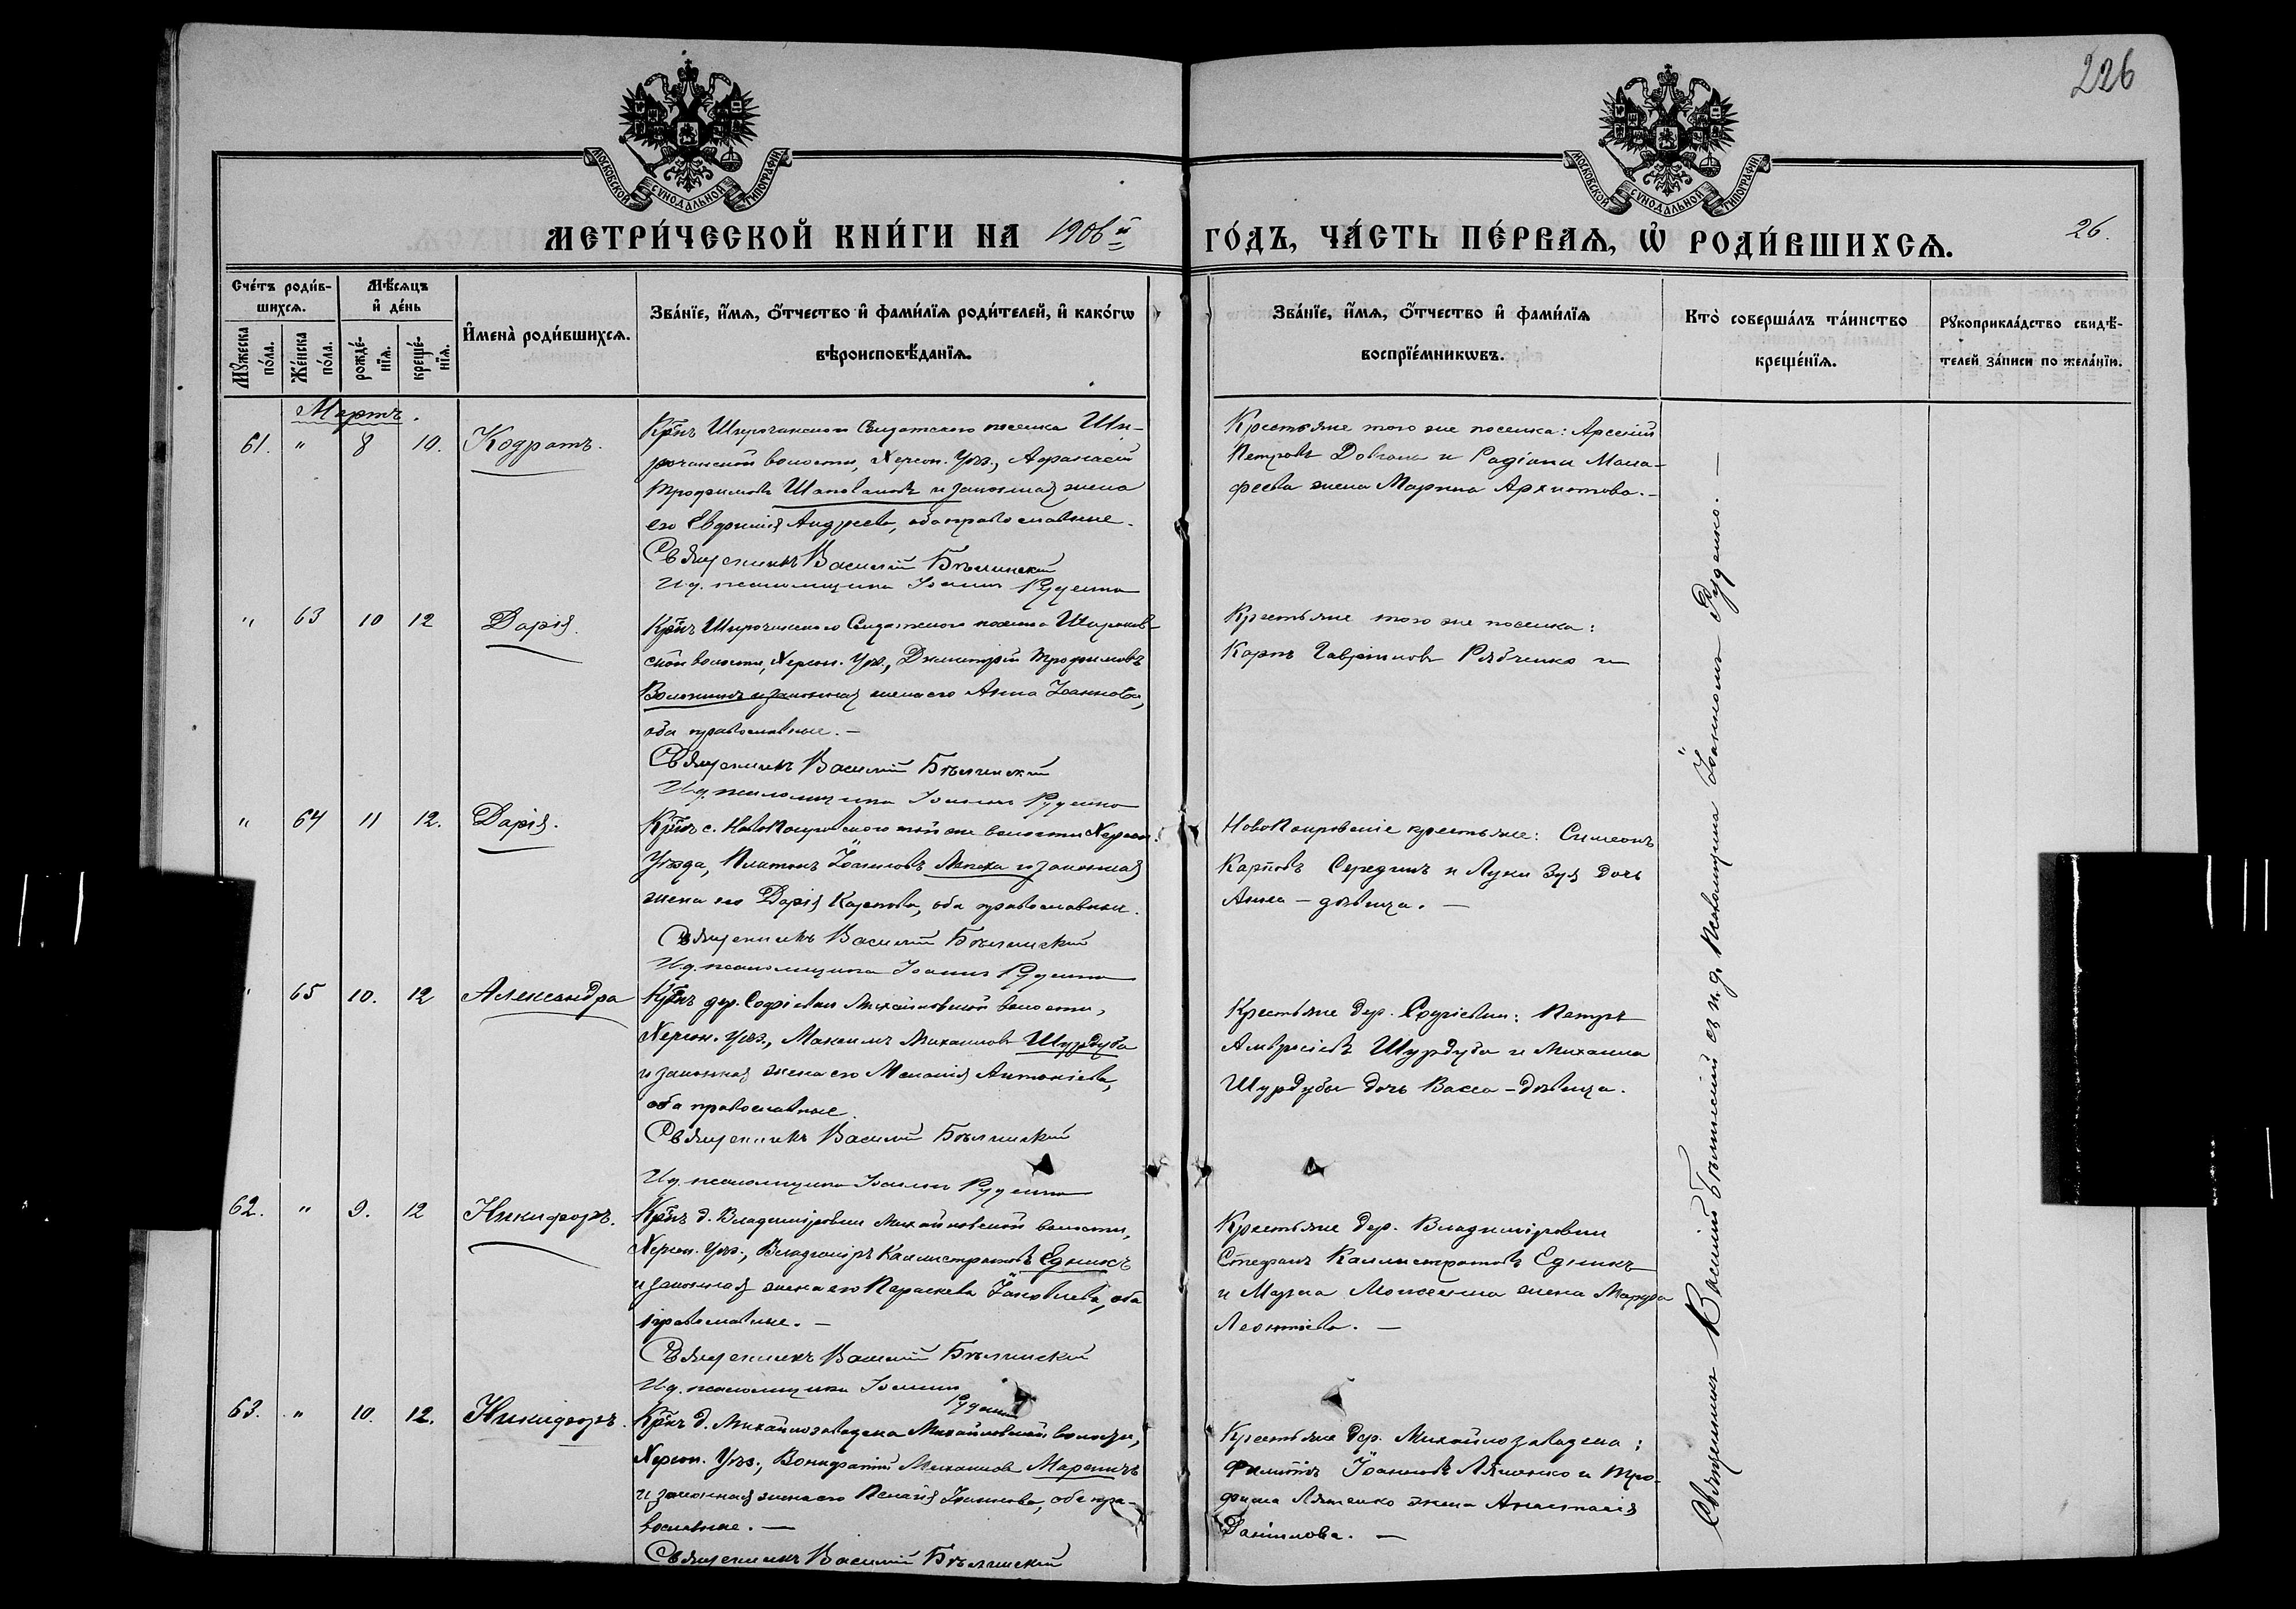 226
МОСКОВСКОЙ СѴНОДАЛЬНОЙ ТИПОГРАФІИ
МОСКОВСКОЙ СѴНОДАЛЬНОЙ ТИПОГРАФІИ
МЕТРИ́ЧЕСКОЙ КНИ́ГИ НА 1906 й
ГО́ДЪ, ЧА́СТЬ ПЕ́РВАѦ, Ѡ҆ РОДИ́ВШИХСѦ.
26.
Сче́тъ роди́в-
шихсѧ.
Мѣ́сѧцъ
и҆ де́нь
Мꙋ́жеска
по́ла.
Же́нска
по́ла.
рожде́-
нїѧ.
креще́-
нїѧ.
И҆мена̀ роди́вшихсѧ.
Зва́нїе, и҆́мѧ, ѻ҆́тчество и҆ фами́лїѧ роди́телей, и҆ како́гѡ
вѣроисповѣ́данїѧ.
Зва́нїе, и҆́мѧ, ѻ҆́тчество и҆ фами́лїѧ
воспрїе́мникѡвъ.
Кто̀ соверша́лъ та́инство
креще́нїѧ.
Рꙋкоприкла́дство свидѣ́-
телей за́писи по жела́нїю.
Мартъ.
61. " 8 10. Кодратъ.
Крнъ
поселка
волости, Херсон. Уѣз., Афанасій
Трофимовъ Шаповаловъ и законная жена
его Евфимія Андреева, оба православные.
Священникъ Василій Бѣлинскій
И.д. псаломщика Іоаннъ Руденко
Крестьяне того же поселка: Арсеній
Петровъ и Радіона
жена Марина
" 63 10 12 Дарія.
Крнъ
поселка
волости, Херсон. Уѣз., Димитрій Трофимовъ
и законная жена его Анна Іоаннова,
оба православные. —
Священникъ Василій Бѣлинскій
И.д. псаломщика Іоаннъ Руденко
Крестьяне того же поселка:
Карпъ Гавріиловъ Рябченко и
" 64 11 12. Дарія.
Крнъ с. НовоПокровского той же волости Херсон.
Уѣзда, Платонъ Іоанновъ и законная
жена его Дарія Карпова, оба православные.
Священникъ Василій Бѣлинскій
И.д. псаломщика Іоаннъ Руденко
НовоПокровскіе крестьяне: Симеонъ
Карповъ Середина и Луки Зуя дочь
Анна – дѣвица. —
" 65 10. 12 Александра
Крнъ дер. Софіевки Михайловской волости,
Херсон. Уѣз., Максимъ Михаиловъ Шурдуба
и законная жена его Меланія Антоніева,
оба православные.
Священникъ Василій Бѣлинскій
И.д. псаломщика Іоаннъ Руденко
Крестьяне дер. Софіевки: Петръ
Амвросіевъ Шурдуба и Михаила
Шурдубы дочь Васса – дѣвица.
62. " 9. 12 Никифоръ.
Крнъ д. Владиміровки Михайловской волости,
Херсон. Уѣз., Владиміръ Каллистратовъ Едникъ
и законная жена его Параскева Іаковлева, оба
православные. —
Священникъ Василій Бѣлинскій
И.д. псаломщика Іоаннъ
Руденко
Крестьяне дер. Владиміровки
Стефанъ Каллистратовъ Едникъ
и жена Марфа
Леонтіева. —
63. " 10. 12. Никифоръ.
Крнъ д. Михайлозаводска Михайловской волости,
Херсон. Уѣз., Вонифатій Михаиловъ
и законная жена его Пелагія Іоаннова, оба пра-
вославные. —
Священникъ Василій Бѣлинскій
Крестьяне дер. Михайлозаводска:
Филиппъ Іоанновъ Ляшенко и Тро-
фима Ляшенко жена Анастасія
Даніилова. —
Священникъ Василій Бѣлинскій съ и. д. псаломщика Іоанномъ Руденко. —